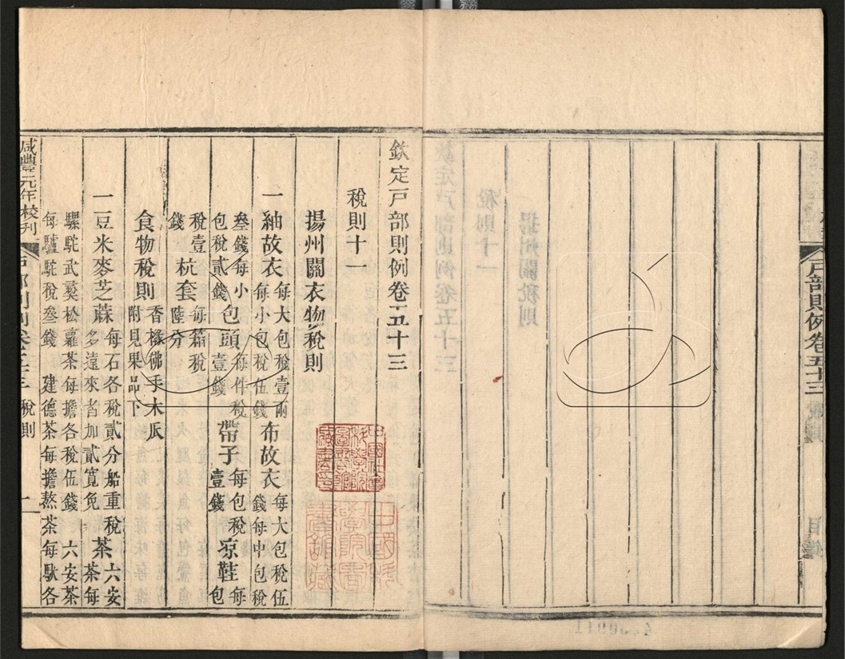 戶部則例卷五十三
欽定戶部則例卷五十三
稅則十一
揚州關衣物稅則
一紬故衣每大包稅壹兩每小包稅伍錢布故衣每大包稅伍錢每中包稅
叁錢每小包稅貳錢包頭每件稅壹錢帶子每包稅壹錢涼鞋每包
稅壹錢杭套每箱稅陸分
食物稅則香櫞佛手木瓜附見果品下
一豆米麥芝蔴每石各稅貳分船重稅多遠來者加貳寬免茶六安茶每
騾駝武彛松蘿茶每擔各稅伍錢 六安茶每驢駝稅叁錢 建德茶每擔熬茶每馱各
咸豐元年校刊 戶部則例卷五十三 稅則 一